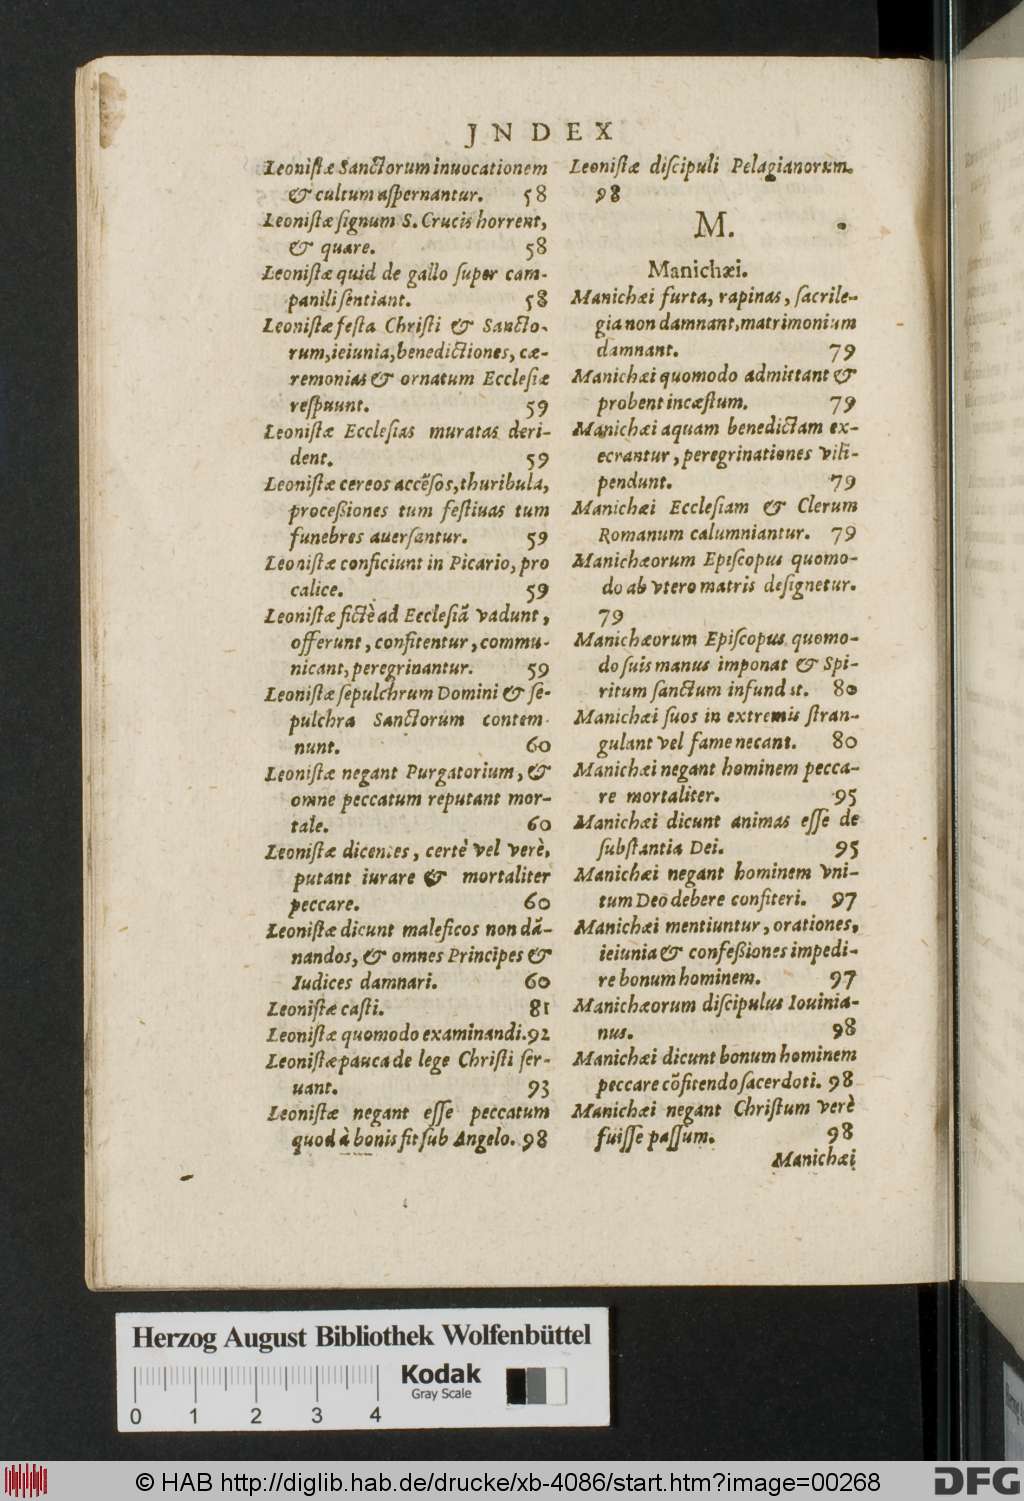 JNDEX
Leoniſtæ Sanctorum inuocationem
& cultum aſpernantur. 58
Leoniſtæ ſignum S. Crucis horrent,
& quare. 58
Leoniſtæ quid de gallo ſuper cam-
panili ſentiant. 58
Leoniſtæ feſta Chriſti & Sancto-
rum, ieiunia, benedictiones, cæ-
remonias & ornatum Eccleſiæ
reſpuunt. 59
Leoniſtæ Eccleſias muratas deri-
dent. 59
Leoniſtæ cereos accẽſos, thuribula,
proceßiones tum feſtiuas tum
funebres auerſantur. 59
Leoniſtæ conficiunt in Picario, pro
calice. 59
Leoniſtæ fictè ad Eccleſiã vadunt,
offerunt, confitentur, commu-
nicant, peregrinantur. 59
Leoniſtæ ſepulchrum Domini & ſe-
pulchra Sanctorum contem-
nunt. 60
Leoniſtæ negant Purgatorium, &
omne peccatum reputant mor-
tale. 60
Leoniſtæ dicentes, certè vel verè,
putant iurare & mortaliter
peccare. 60
Leoniſtæ dicunt maleficos non dã-
nandos, & omnes Principes &
Iudices damnari. 60
Leoniſtæ caſti. 81
Leoniſtæ quomodo examinandi. 92
Leoniſtæ pauca de lege Chriſti ſer-
uant. 93
Leoniſtæ negant eſſe peccatum
quod à bonis fit ſub Angelo. 98
Leoniſtæ diſcipuli Pelagianorum.
98
M.
Manichæi.
Manichæi furta, rapinas, ſacrile-
gia non damnant, matrimonium
damnant. 79
Manichæi quomodo admittant &
probent incæſtum. 79
Manichæi aquam benedictam ex-
ecrantur, peregrinationes vili-
pendunt. 79
Manichæi Eccleſiam & Clerum
Romanum calumniantur. 79
Manichæorum Epiſcopus quomo-
do ab vtero matris deſignetur.
79
Manichæorum Epiſcopus quomo-
do ſuis manus imponat & Spi-
ritum ſanctum infundat. 80
Manichæi ſuos in extremis ſtran-
gulant vel fame necant. 80
Manichæi negant hominem pecca-
re mortaliter. 95
Manichæi dicunt animas eſſe de
ſubſtantia Dei. 95
Manichæi negant hominem vni-
tum Deo debere confiteri. 97
Manichæi mentiuntur, orationes,
ieiunia & confeßiones impedi-
re bonum hominem. 97
Manichæorum diſcipulus Iouinia-
nus. 98
Manichæi dicunt bonum hominem
peccare cõfitendo ſacerdoti. 98
Manichæi negant Chriſtum verè
fuiſſe paſſum. 98
Manichæi
Herzog August Bibliothek Wolfenbüttel
Kodak
Gray Scale
0 1 2 3 4
© HAB http://diglib.hab.de/drucke/xb-4086/start.htm?image=00268
DFG